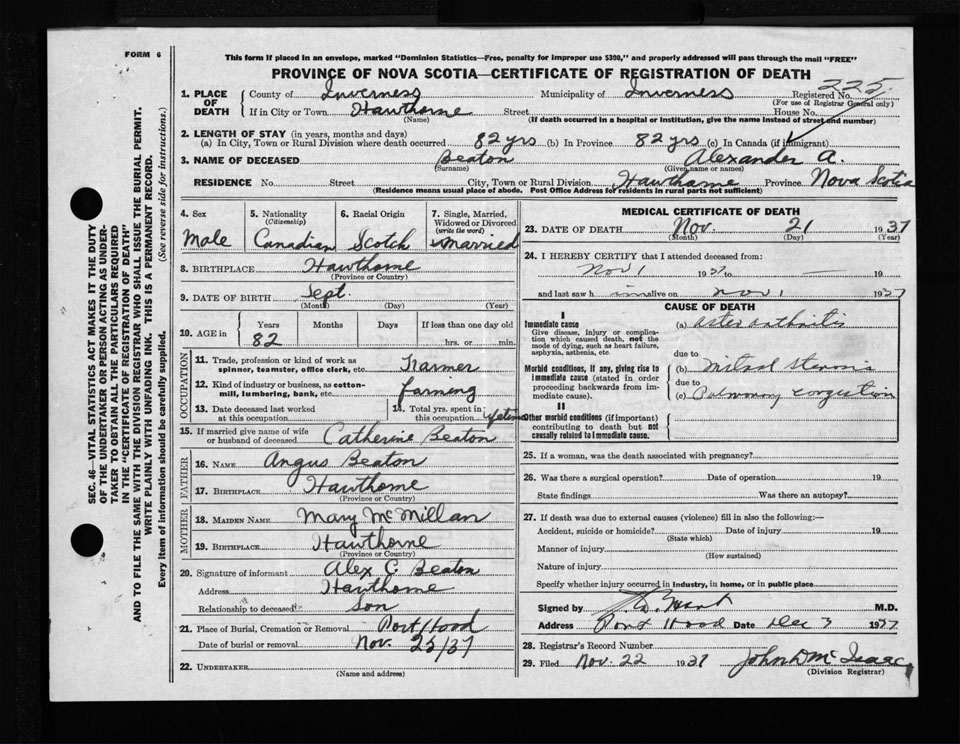 FORM 6
This form if placed in an envelope, marked "Dominion Statistics—Free, penalty for improper use $300," and properly addressed will pass through the mail "FREE"
PROVINCE OF NOVA SCOTIA—CERTIFICATE OF REGISTRATION OF DEATH
225
1. PLACE OF DEATH County of Inverness Municipality of Inverness Registered No.
(For use of Registrar General only)
If in City or Town Hawthorne Street House No.
(Name) (If death occurred in a hospital or institution, give the name instead of street and number)
2. LENGTH OF STAY (in years, months and days)
(a) In City, Town or Rural Division where death occurred 82 yrs (b) In Province 82 yrs (c) In Canada (if immigrant)
3. NAME OF DECEASED Beaton Alexander A.
(Surname) (Given name or names)
RESIDENCE No. Street City, Town or Rural Division Hawthorne Province Nova Scotia
(Residence means usual place of abode. Post Office Address for residents in rural parts not sufficient)
4. Sex 5. Nationality 6. Racial Origin 7. Single, Married, Widowed or Divorced
(Citizenship) (write the word)
Male Canadian Scotch Married
8. BIRTHPLACE Hawthorne
(Province or Country)
9. DATE OF BIRTH Sept.
(Month) (Day) (Year)
10. AGE in Years Months Days If less than one day old
82 hrs. or min.
OCCUPATION
11. Trade, profession or kind of work as spinner, teamster, office clerk, etc. Farmer
12. Kind of industry or business, as cotton-mill, lumbering, bank, etc. farming
13. Date deceased last worked at this occupation 14. Total yrs. spent in this occupation
15. If married give name of wife or husband of deceased Catherine Beaton
FATHER
16. NAME Angus Beaton
17. BIRTHPLACE Hawthorne
(Province or Country)
MOTHER
18. MAIDEN NAME Mary McMillan
19. BIRTHPLACE Hawthorne
(Province or Country)
20. Signature of informant Alex C. Beaton
Address Hawthorne
Relationship to deceased Son
21. Place of Burial, Cremation or Removal Port Hood
Date of burial or removal Nov. 25/37
22. UNDERTAKER
(Name and address)
MEDICAL CERTIFICATE OF DEATH
23. DATE OF DEATH Nov. 21 1937
(Month) (Day) (Year)
24. I HEREBY CERTIFY that I attended deceased from:
Nov 1 1937 to 19
and last saw h im alive on Nov 1 1937
CAUSE OF DEATH
I
Immediate cause (a)
Give disease, injury or complication which caused death, not the mode of dying, such as heart failure, asphyxia, asthenia, etc.
due to
Morbid conditions, if any, giving rise to immediate cause (stated in order proceeding backwards from immediate cause). (b) Mitral Stenosis
due to
(c) Pulmonary congestion
II
Other morbid conditions (if important) contributing to death but not causally related to immediate cause.
25. If a woman, was the death associated with pregnancy?
26. Was there a surgical operation? Date of operation 19
State findings Was there an autopsy?
27. If death was due to external causes (violence) fill in also the following:—
Accident, suicide or homicide? Date of injury 19
(State which)
Manner of injury
(How sustained)
Nature of injury
Specify whether injury occurred in industry, in home, or in public place
Signed by M.D.
Address Port Hood Date Dec 3 1937
28. Registrar's Record Number
29. Filed Nov. 22 1937 John D McIsaac
(Division Registrar)
SEC. 46—VITAL STATISTICS ACT MAKES IT THE DUTY
OF THE UNDERTAKER OR PERSON ACTING AS UNDER-
TAKER TO OBTAIN ALL THE PARTICULARS REQUIRED
IN THE "CERTIFICATE OF REGISTRATION OF DEATH"
AND TO FILE THE SAME WITH THE DIVISION REGISTRAR WHO SHALL ISSUE THE BURIAL PERMIT.
WRITE PLAINLY WITH UNFADING INK. THIS IS A PERMANENT RECORD.
Every item of information should be carefully supplied. (See reverse side for instructions.)